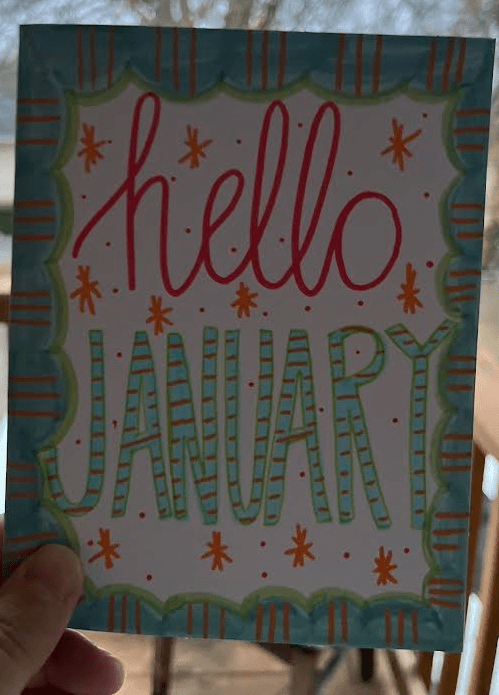 hello
JANUARY